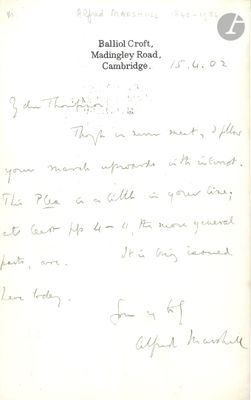 Alfred MARSHALL 1842-1924
Balliol Croft,
Madingley Road,
Cambridge.
15.4.02
My dear Thompson
Though we never meet, I follow
your march upwards with interest.
This Plea is a little in your line;
at least pp 4–11, the more general
parts, are. It is being issued
here today.
Yours
Alfred Marshall